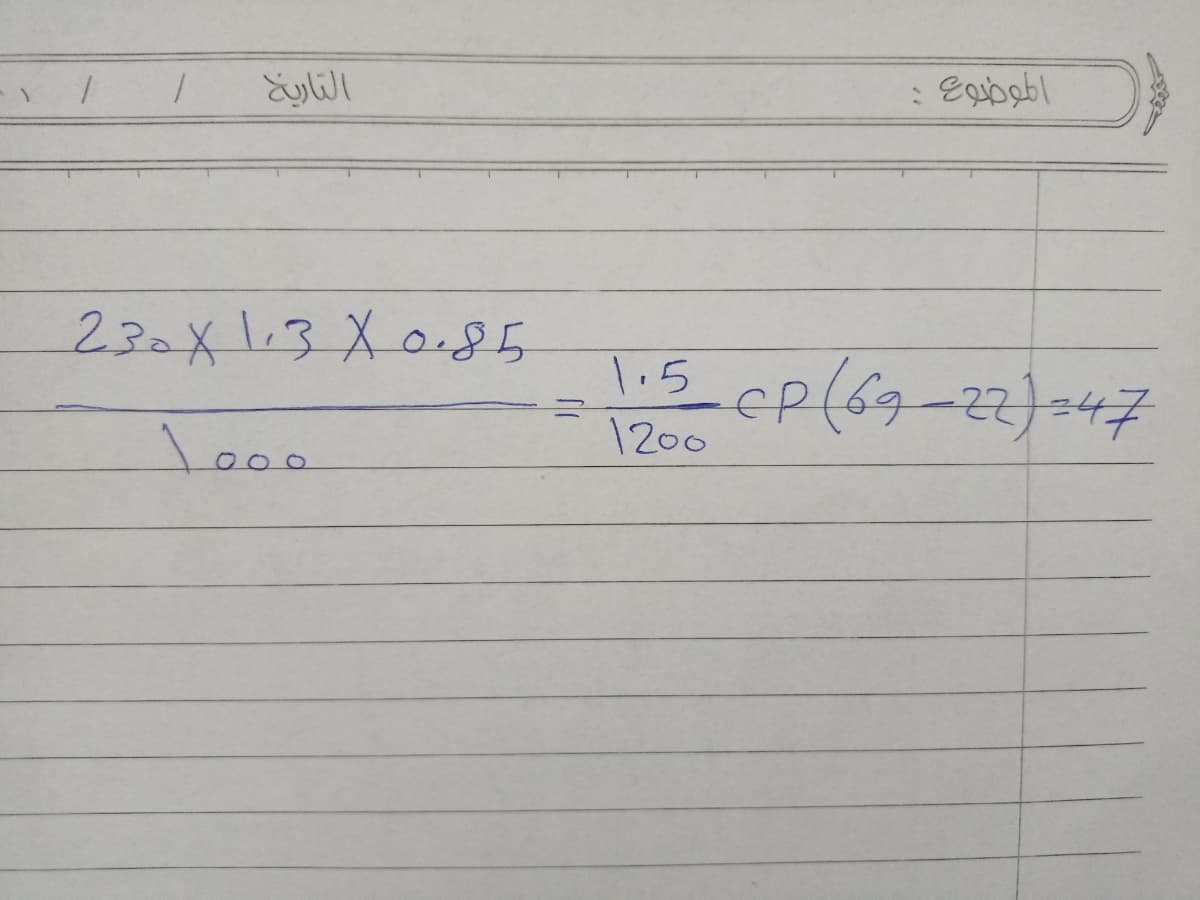 الموضوع : التاريخ / /
230 X 1.3 X 0.85 / 1000 = 1.5 / 1200 CP (69 - 22) = 47